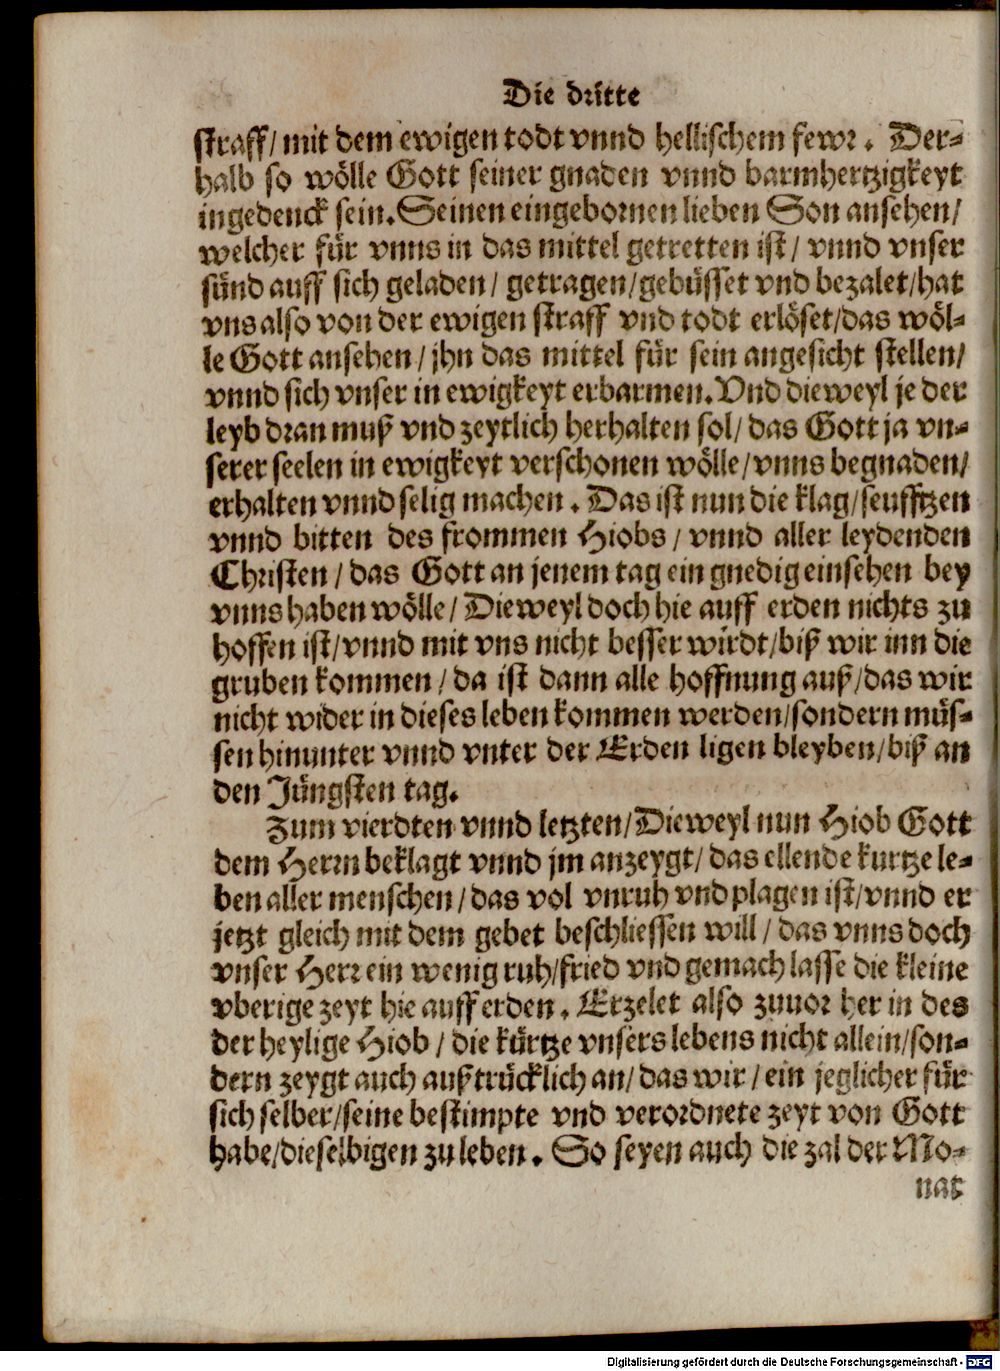 Die dritte
straff/ mit dem ewigen todt vnnd hellischem fewr. Der-
halb so wölle Gott seiner gnaden vnnd barmhertzigkeyt
ingedenck sein. Seinen eingebornen lieben Son ansehen/
welcher für vnns in das mittel getretten ist/ vnnd vnser
sünd auff sich geladen/ getragen/ gebüsset vnd bezalet/ hat
vns also von der ewigen straff vnd todt erlöset/ das wöl-
le Gott ansehen/ jhn das mittel für sein angesicht stellen/
vnnd sich vnser in ewigkeyt erbarmen. Vnd dieweyl je der
leyb dran muß vnd zeytlich herhalten sol/ das Gott ja vn-
serer seelen in ewigkeyt verschonen wölle/ vnns begnaden/
erhalten vnnd selig machen. Das ist nun die klag/ seufftzen
vnnd bitten des frommen Hiobs/ vnnd aller leydenden
Christen/ das Gott an jenem tag ein gnedig einsehen bey
vnns haben wölle/ Dieweyl doch hie auff erden nichts zu
hoffen ist/ vnnd mit vns nicht besser wirdt/ biß wir inn die
gruben kommen/ da ist dann alle hoffnung auß/ das wir
nicht wider in dieses leben kommen werden/ sondern müs-
sen hinunter vnnd vnter der Erden ligen bleyben/ biß an
den Jüngsten tag.
Zum vierdten vnnd letzten/ Dieweyl nun Hiob Gott
dem Herrn beklagt vnnd jm anzeygt/ das ellende kurtze le-
ben aller menschen/ das vol vnruh vnd plagen ist/ vnnd er
jetzt gleich mit dem gebet beschliessen will/ das vnns doch
vnser Herr ein wenig ruh/ fried vnd gemach lasse die kleine
vberige zeyt hie auff erden. Erzelet also zuuor her in des
der heylige Hiob/ die kürtze vnsers lebens nicht allein/ son-
dern zeygt auch außtrücklich an/ das wir/ ein jeglicher für
sich selber/ seine bestimpte vnd verordnete zeyt von Gott
habe/ dieselbigen zu leben. So seyen auch die zal der Mo-
nat
Digitalisierung gefördert durch die Deutsche Forschungsgemeinschaft - DFG